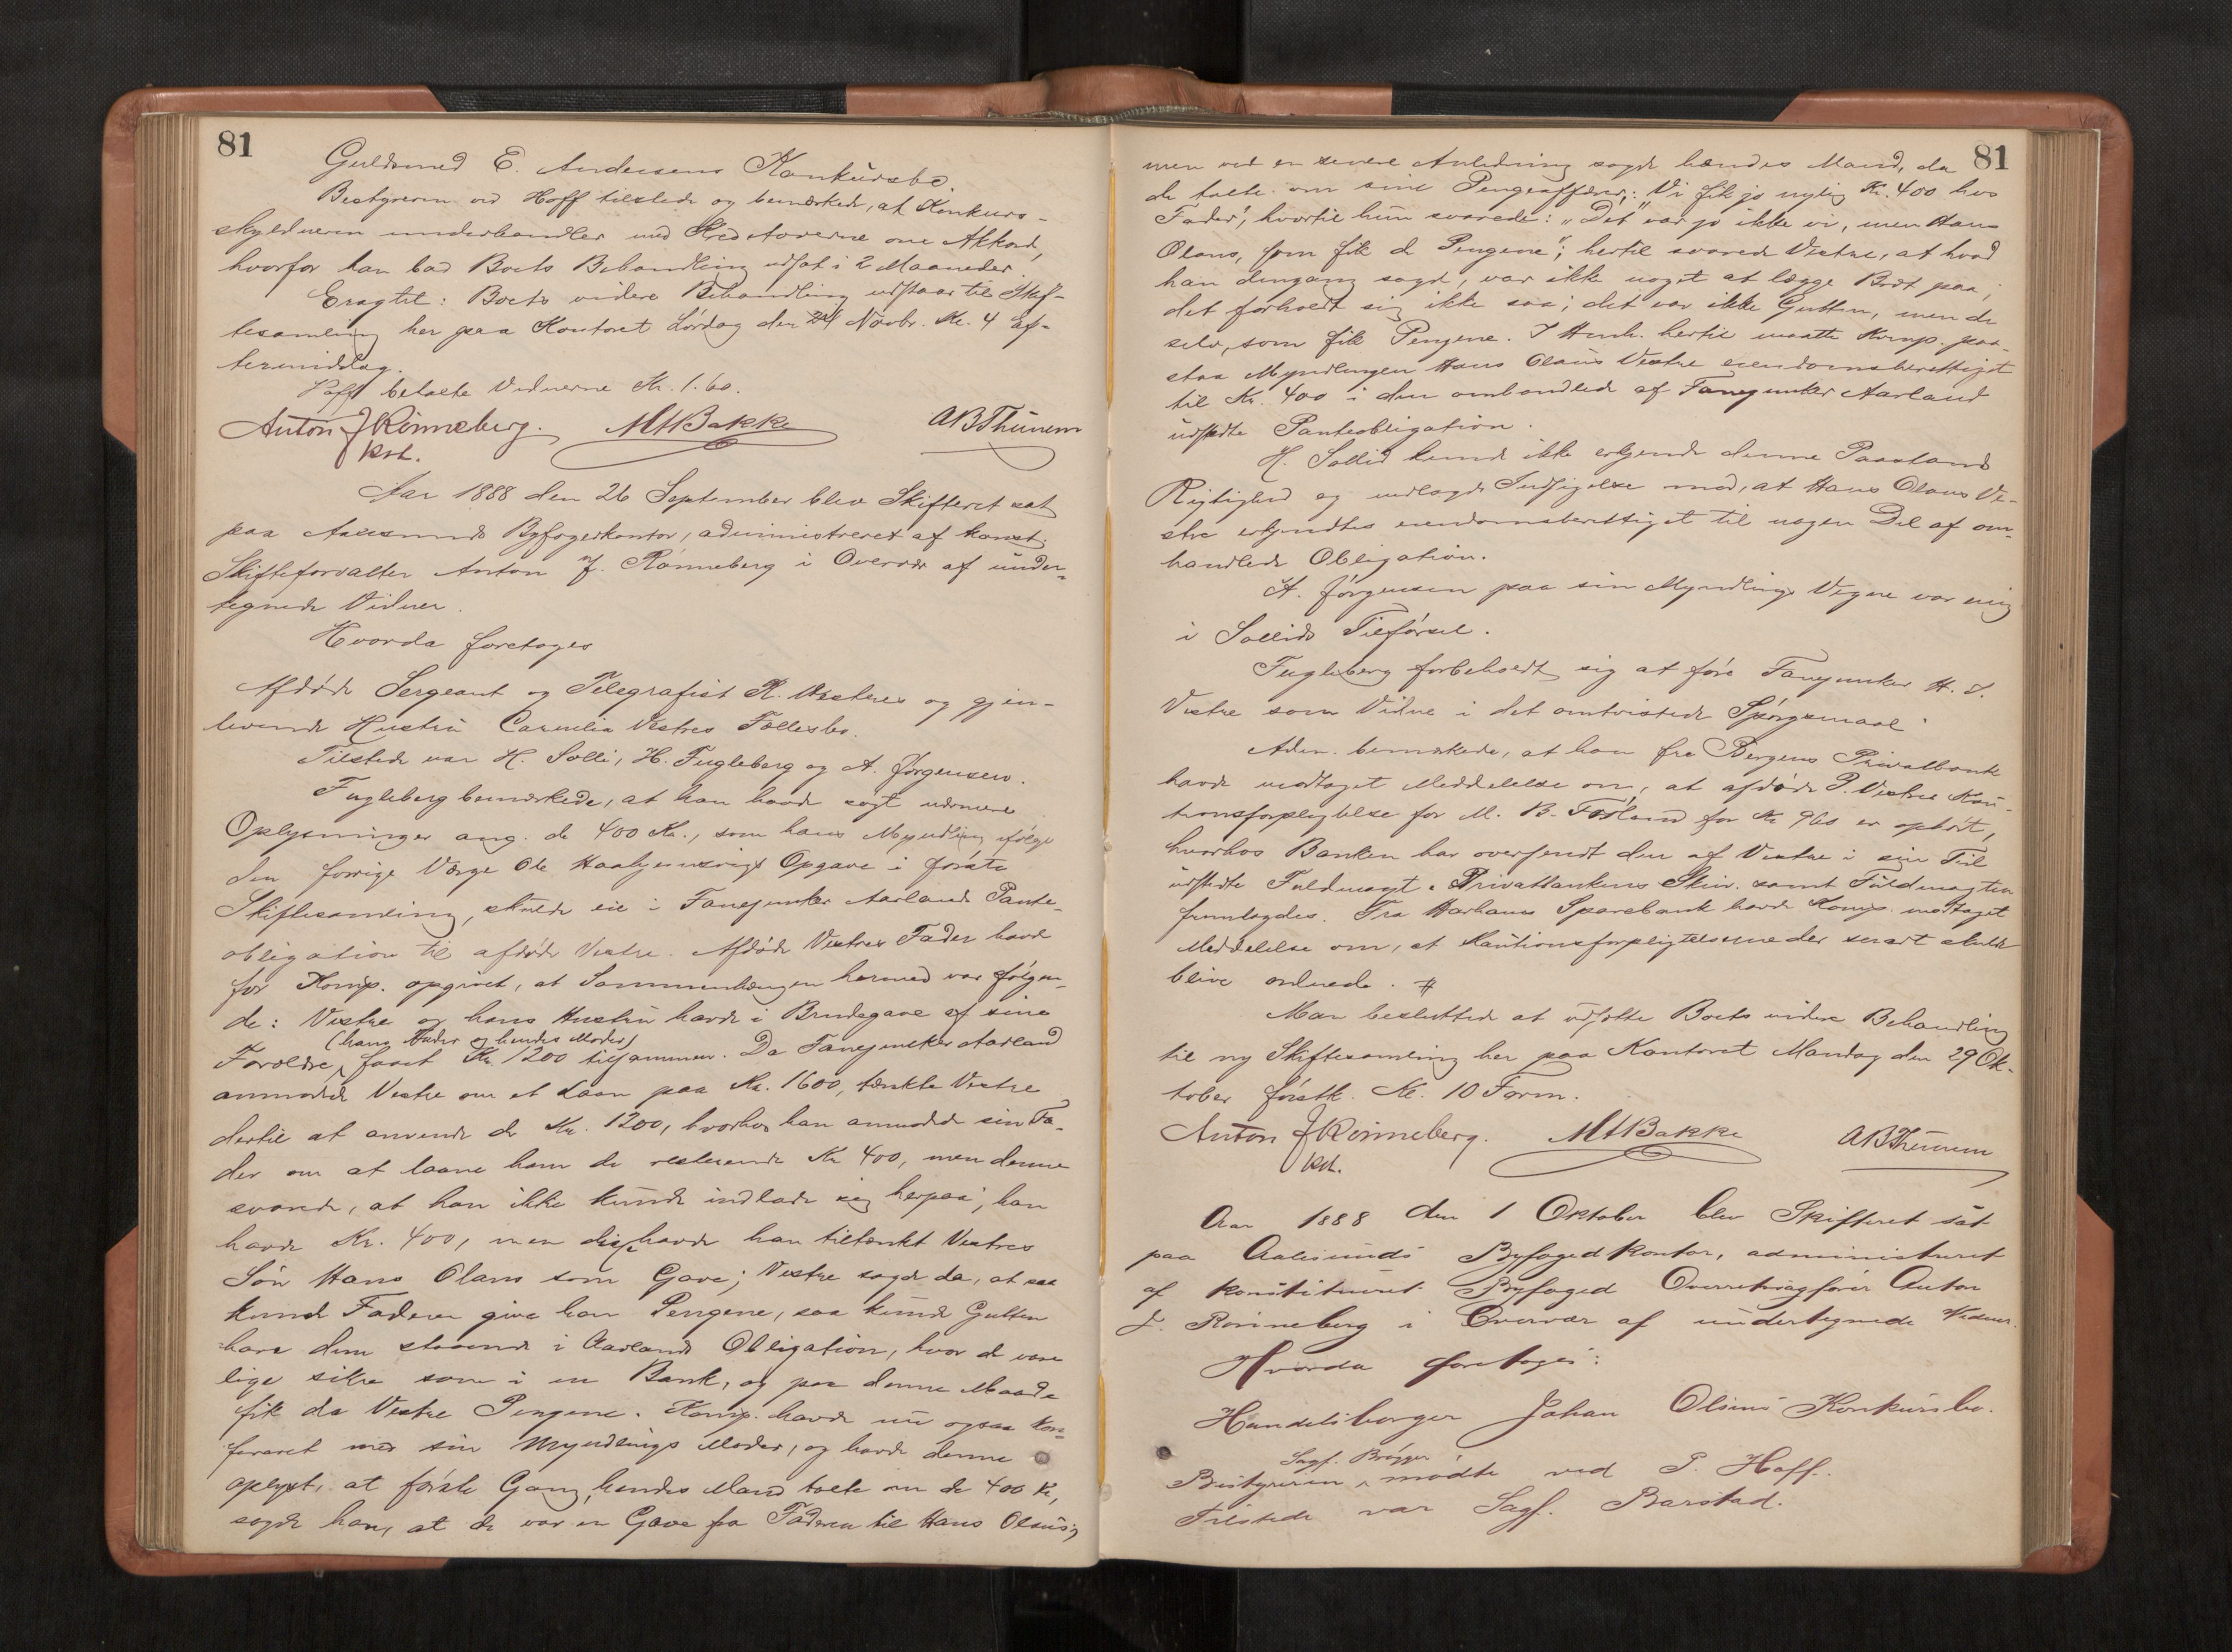 81
Guldsmed E. Andersens Konkursbo.
Bestyreren ved Hoff tilstede og bemærkede, at Konkurs-
skyldneren underhandler med Kreditorerne om Akkord,
hvorfor han bad Boets Behandling udsat i 2 Maaneder.
Eragtet: Boets videre Behandling udstaar til Skif-
tesamling her paa Kontoret Lørdag den 24 Novbr. Kl. 4 Ef-
termiddag.
Hoff betalte Vidnerne Kr. 1.60.
Anton J Rönneberg. MHBakke ABThünem
kst.
Aar 1888 den 26 September blev Skifteret sat
paa Aalesunds Byfogedkontor, administreret af konst.
Skifteforvalter Anton J. Rønneberg i Overvær af under-
tegnede Vidner.
Hvorda foretoges
Afdøde Sergeant og Telegrafist R. Vestres og gjen-
levende Hustru Cornelia Vestres Fællesbo.
Tilstede var H. Solli, H. Fugleberg og A. Jørgensen.
Fugleberg bemærkede, at han havde søgt nærmere
Oplysninger ang. de 400 Kr., som hans Myndling ifølge
den forrige Værge Ole Opgave i første
Skiftesamling, skulde eie i Fanejunker Aarlands Pante-
obligation til afdøde Vestre. Afdøde Vestres Fader havde
for Komp. opgivet, at Sammenhængen hermed var følgen-
de: Vestre og hans Hustru havde i Brudegave af sine
(hans Fader og hendes Moder)
Forældre faaet Kr. 1200 tilsammen. Da Fanejunker Aarland
anmodede Vestre om et Laan paa Kr. 1600, tænkte Vestre
dertil at anvende de Kr. 1200, hvorhos han anmodede sin Fa-
der om at laane ham de resterende Kr 400, men denne
svarede, at han ikke kunde indlade sig herpaa; han
havde Kr. 400, men disse havde han tiltænkt Vestres
Søn Hans Olaus som Gave; Vestre sagde da, at saa
kunde Faderen give ham Pengene, saa kunde Gutten
have dem staaende i Aarlands Obligation, hvor de vare
lige sikre som i en Bank, og paa denne Maade
fik da Vestre Pengene. Komp. havde nu ogsaa kon-
fereret med sin Myndlings Moder, og havde denne
oplyst, at første Gang hendes Mand talte om de 400 Kr,
sagde han, at de var en Gave fra Faderen til Hans Olaus;
81
men ved en senere Anledning sagde hendes Mand, da
de talte om sine Pengeaffærer: "Vi fik jo nylig Kr. 400 hos
Fader", hvortil hun svarede: "Det var jo ikke vi, men Hans
Olaus, som fik d Pengene"; hertil svarede Vestre, at hvad
han dengang sagde, var ikke noget at lægge Brot paa;
det forholdt sig ikke saa; det var ikke Gutten, men de
selv, som fik Pengene. I Henh. hertil maatte Komp. paa-
staa Myndlingen Hans Olaus Vestre eiendomsberettiget
til Kr. 400 i den omhandlede af Fanejunker Aarland
udstedte Panteobligation.
H. Sollid kunde ikke erkjende denne Paastands
Rigtighed og nedlagde Indsigelse mod, at Hans Olaus Ve-
stre erkjendtes eiendomsberettiget til nogen Del af om-
handlede Obligation.
A. Jørgensen paa sin Myndlings Vegne var enig
i Sollids Tilførsel.
Fugleberg forbeholdt sig at føre Fanejunker H. S.
Vestre som Vidne i det omtvistede Spørgsmaal.
Adm. bemærkede, at han fra Bergens Privatbank
havde modtaget Meddelelse om, at afdøde P. Vestres Kau-
tionsforpligtelse for M. B. Fosland for Kr 960 er ophørt,
hvorhos Banken har oversendt den af Vestre i sin Tid
udstedte Fuldmagt. Privatbankens Skriv. samt Fuldmagten
fremlagdes. Fra Harhams Sparebank havde Komp. modtaget
Meddelelse om, at Kautionsforpligtelserne der snart skulde
blive ordnede. #
Man besluttede at udsætte Boets videre Behandling
til ny Skiftesamling her paa Kontoret Mandag den 29 Ok-
tober førstk. Kl. 10 Form.
Anton J Rönneberg. MHBakke ABThünem
kst.
Aar 1888 den 1 Oktober blev Skifteret sat
paa Aalesunds Byfogedkontor, administreret
af konstitueret Byfoged Overretssagfører Anton
J. Rönneberg i Overvær af undertegnede Vidner.
Hvorda foretoges:
Handelsborger Johan Olsens Konkursbo.
Sagf. Brøgger
Bestyreren mødte ved P. Hoff.
Tilstede var Sagf. Barstad.